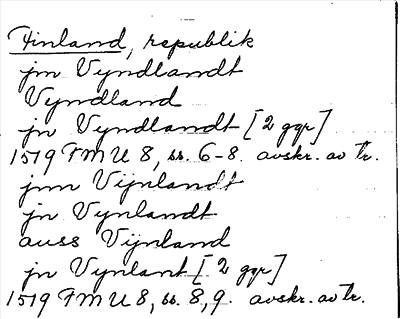 Finland, republik
jn Vyndlandt
Vyndland
jn Vyndlandt [2 ggr]
1519 FMU 8, ss. 6-8. avskr. av tr.
jnn Vijnlandt
jn Vynlandt
auss Vijnland
jn Vynlant [2 ggr]
1519 FMU 8, ss. 8,9. avskr. av tr.